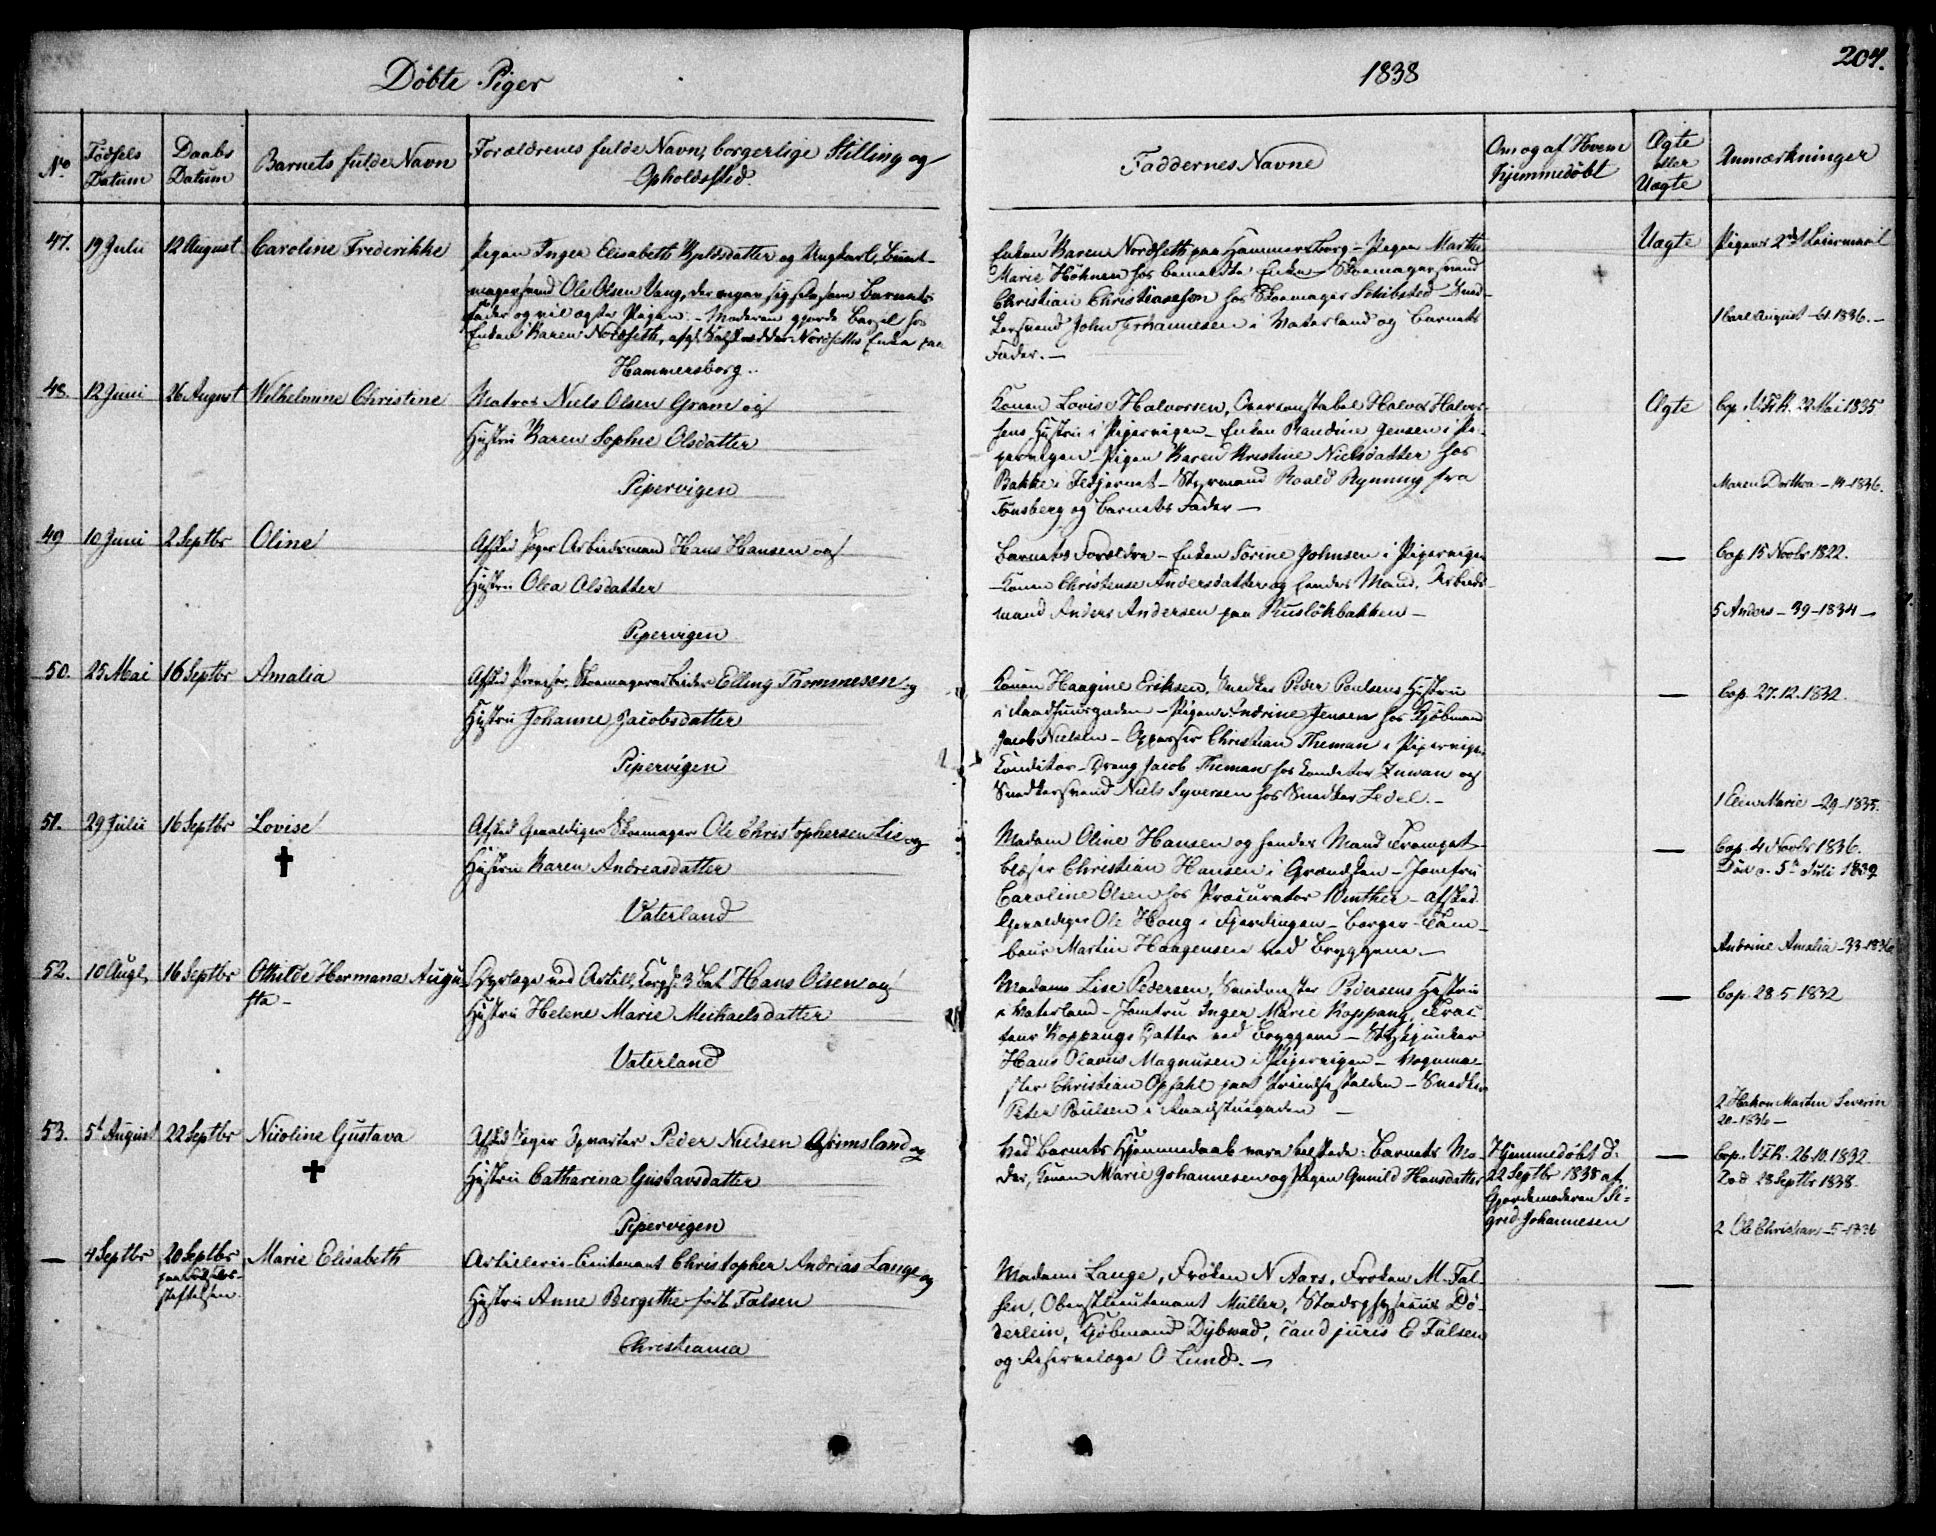 Döbte Piger
1838
204.
No
Födsels Datum
Daabs Datum
Barnets fulde Navn
Forældrenes fulde Navn, borgerlige Stilling og Opholdssted.
Faddernes Navne
Om og af Hvem hjemmedöbt
Ægte eller Uægte
Anmærkninger
47. 19 Julii 12 August Caroline Frederikke
Pigen Inger Elisabeth Kjeldsdatter og Ungkarl,
Ole Olsen Vang, der angav sig selv som Barnets
Fader og vil ægte Pigen. – Moderen gjorde Barsel hos
Enken Karen Nordseth, Nordseths Enke paa
Hammersborg.
Enken Karen Nordseth paa Hammersborg – Pigen Marthe
Marie Höknen hos bemeldte Enke – Skomagersvend
Christian Christiansen hos Skomager Schibsted – Sned-
kersvend John Johannesen i Vaterland og Barnets
Fader. –
Uægte
Pigens 2det Leiermaal
1 Carl August – 61. 1836. –
48. 12 Juni 26 August Wilhelmine Christine
Matros Niels Olsen Gram og
Hustru Karen Sophie Olsdatter
Pipervigen
Konen Lovise Halvorsen, Overconstabel Halvor Halvor-
sens Hustru i Pipervigen – Enken Randine Jensen i Pi-
pervigen – Pigen Karen Kristine Nielsdatter hos
Bakke i – Styrmand Roald Rynning fra
Tönsberg og Barnets Fader –
Ægte
Cop. V.F.K. 22 Mai 1835
Maren Dorthea – 14 – 1836.
49 10 Juni 2 Septbr Oline
Afsked Jæger Arbeidsmand Hans Hansen og
Hustru Olea Olsdatter
Pipervigen
Barnets Forældre – Enken Sörine Johnsen i Pipervigen
– Konen Christense Andersdatter og hendes Mand, Arbeids-
mand Anders Andersen paa Ruslökbakken –
—
Cop. 15 Novbr 1822.
5 Anders – 39 – 1834 –
50. 25 Mai 16 Septbr Amalia
Afsked Skomagerarbeider Elling Thommesen og
Hustru Johanne Jacobsdatter
Pipervigen
Konen Haagine Eriksen, Snedker Peder Poulsens Hustru
i Raadhuusgaden – Pigen Andrine Jensen hos Kjöbmand
Jacob Nielsen – Oppasser Christian Theman i Pipervigen
Konditor-Dreng Jacob Theman hos Konditor og
Snedkersvend Niels Syversen hos Snedker Ledel. –
—
Cop. 27.12.1832.
1 Marie – 29 – 1835.
51. 29 Julii 16 Septbr Lovise
✝
Afsked Geraldiger Skomager Ole Christophersen Lie og
Hustru Karen Andreasdatter
Vaterland
Madam Oline Hansen og hendes Mand Trompet-
blæser Christian Hansen i Grændsen – Jomfru
Caroline Olsen hos Procurator Winther – afsked
Geraldiger Ole Haug i Fjerdingen – Borger-Tam-
bour Martin Haagensen ved Bryggene. –
—
Cop. 4 Novbr 1836.
Död 5te Juli 1839
Andrine Amalia – 33 – 1836
52. 10 Augt, 16 Septbr Othilde Hermana Augu-
sta –
ved Artill. 3 Bat. Hans Olsen og
Hustru Helene Marie Michaelsdatter
Vaterland
Madame Lise Pedersen, Smedmester Pedersens Hustru
i Vaterland – Jomfru Inger Marie Koppang, Trac-
teur Koppangs Datter ved Bryggene – Stykjunker
Hans Olavus Magnussen i Pipervigen – Vognme-
ster Christian Opsahl paa – Snedker
Peter Poulsen i Raadstuegaden –
—
Cop. 28.5.1832
2 Hakon Martin Severin
20 – 1836 –
53. 5te August 22 Septbr Nicoline Gustava
✝
Afsked Jæger Peder Nielsen Grimsland og
Hustru Catharina Gustavsdatter
Pipervigen
Ved Barnets Hjemmedaab vare tilstede: Barnets Mo-
der, Konen Marie Johannesen og Pigen Gunild Hansdatter
Hjemmedöbt d:
22 Septbr 1838 af
Gjordemoderen Si-
grid Johannesen
—
Cop. V.F.K. 26.10.1832.
Död 28 Septbr 1838.
2 Ole Christian – 5 – 1836
— 4 Septbr 20 Septbr Marie Elisabeth
paa Födsels-
stiftelsen.
Artillerie-Lieutenant Christopher Andreas Lange og
Hustru Anne Bergithe födt Falsen
Christiania
Madame Lange, Fröken N Aars, Fröken M. Fal-
sen, Oberstlieutenant Müller, Stadsphysicus Dö-
derlein, Kjöbmand Dybwad, Cand juris E Falsen
og Reservelæge O Lund. –
—